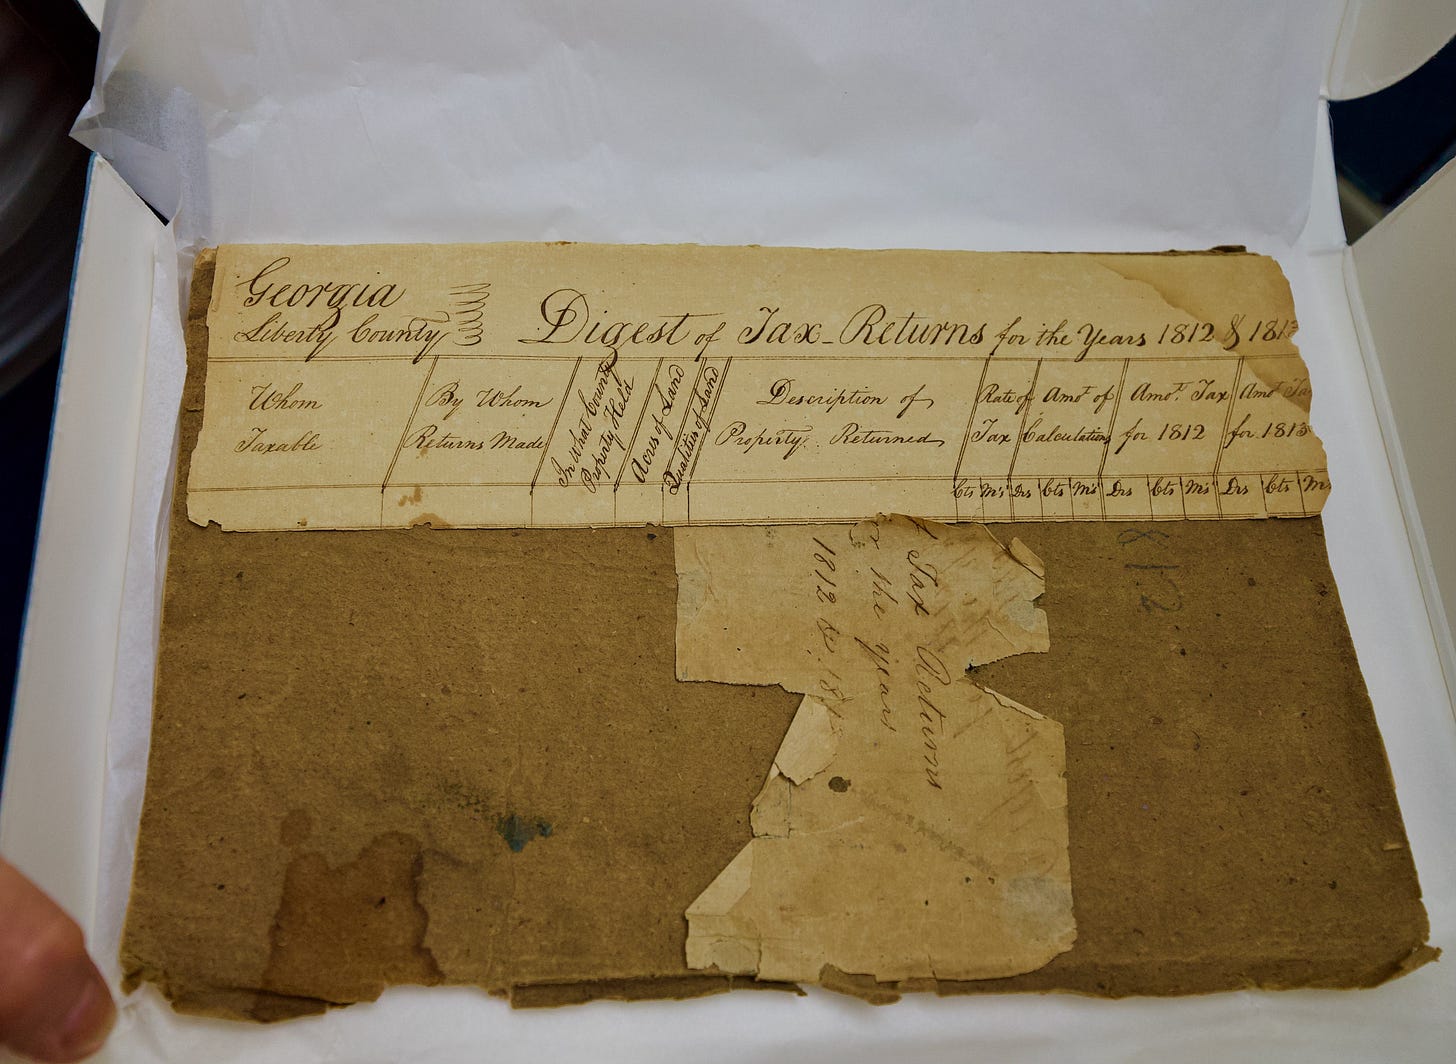 Georgia
Liberty County
Digest of Tax-Returns for the Years 1812 & 1813
Whom
Taxable
By Whom
Returns Made
In what County
Property Held
Acres of Land
Qualities of Land
Description of
Property Returned
Rate of
Tax
Amot of
Calculation
Amot Tax
for 1812
Amot Tax
for 1813
Cts Ms Drs Cts Ms Drs Cts Ms Drs Cts Ms
Tax Returns
the years
1812 & 181
1812